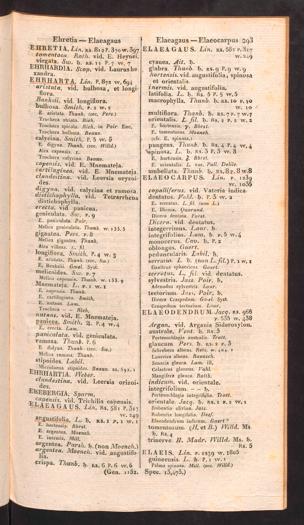 Ehretia — Elaeagaus
EHRETIA, Lin. xx. 819 P. 370 w. 897
tomentosa Roth. vid. E. Heynei.
virgata. Sw. b. xx. 11 P. 7 w. 7
EHRHARDIA. Scop. vid. Laurus he-
xandra.
EHRHARTA, Lin. P. 872 w. 694
aristata, vid. bulbosa, et longi-
flora.
Banksii, vid. longiflora.
bulbosa. Smith, P. 2 w. 2
E. aristata. Thunb. (exc. Pers.)
Trochera striata. Rich.
Trochera spicata. Rich. in Poir. Enc.
Trochera bulbosa. Beauv.
calycina. Smith, P. 5 w. 5
E. digyna. Thunb. (exc. Willd.)
Aira capensis. L.
Trochera calycina. Beauv.
capensis, vid. E. Mnemateja.
cartilaginea, vid. E. Mnemateja.
clandestina, vid. Leersia oryzoi-
des.
digyna, vid. calycina et ramosa.
distichophylla, vid. Tetrarrhena
distichophylla.
erecta, vid. panicea.
geniculata. Sw. P. 9
E. panicea. Poir.
Melica geniculata. Thunb. w. 133. 5
gigantea. Pers. P. 8
Melica gigantea. Thunb.
Aira villosa. L. fil.
longiflora. Smith, P. 4 w. 3
E. aristata. Thunb. (exc. Sw.)
E. Banksii. Gmel. Syst.
melicoides. Sw. P. 7
Melica capensis. Thunb. w. 133. 4
Mnemateja. L. P. 1 w. 1
E. capensis. Thunb.
E. cartilaginea. Smith.
E. nutans. Lam.
Trochera — Rich.
nutans, vid. E. Mnemateja.
panicea. Smith, P. 4 w. 4
E. erecta. Lam.
paniculata, vid. geniculata.
ramosa. Thunb. P. 6
E. digyna. Thunb. (exc. Sw.)
Melica ramosa. Thunb.
stipoides. Labill.
Microlaena stipoides. Beauv.
EHRHARTIA. Weber.
clandestina, vid. Leersia orizoi-
des.
EREBERGIA. Sparm.
capensis, vid. Trichilia capensis.
ELAEAGAUS. Lin. xx. 581 P. 317
w. 249
angustifolia. L. b. xx. 1 P. 1 w. 1
E. hortensis. Bbrst.
E. argentea. Moench.
E. inermis. Mill.
argentea. Pursh. b. (non Moench.)
argentea. Moench. vid. angustifo-
lia.
crispa. Thunb. b. xx. 6 P. 6 w. 6
(Gen. 1182.
Elaeagaus — Elaeocarpus 293
ELAEAGUS. Lin. xx. 581 P. 317
w. 249
cyanea. Ait. b.
glabra. Thunb. b. xx. 9 P. 9 w. 9
hortensis, vid. angustifolia, spinosa
et orientalis.
inermis, vid. angustifolia.
latifolia. L. b. xx. 5 P. 5 w. 5
macrophylla. Thunb. b. xx. 10 P. 10
w. 10
multiflora. Thunb. b. xx. 7 P. 7 w. 7
orientalis. L. fil. b. xx. 2 P. 2 w. 2
E. hortensis. γ. Bbrst.
E. tomentosa. Moench.
(cfr. E. spinosa.)
pungens. Thunb. b. xx. 4 P. 4 w. 4
spinosa. L. b. xx. 3 P. 3 w. 3
E. hortensis. β. Bbrst.
E. orientalis L. var. Pall. Delile.
umbellata. Thunb. b. xx. 8 P. 8 w. 8
ELAEOCARPUS. Lin. P. 1289
w. 1036
copallifera, vid. Vateria indica.
dentatus. Vahl. b. P. 3 w. 2
E. serratus. L. fil. (non L.)
E. Dicera. Quorund.
Dicera dentata. Forst.
Dicera, vid. dentatus.
integerrimus. Lour. b.
integrifolius. Lam. b. P. 5 w. 4
monocerus. Cav. b. P. 2
oblongus. Gaert.
peduncularis. Labil. b.
serratus. L. b. (non L. fil.) P. 1 w. 1
Ganitrus sphaericus Gaert.
serratus. L. fil. vid. dentatus.
sylvestris. Jacq. Poir. b.
Adenodus sylvestris. Lour.
tectorium. Jacq. Poir. b.
Dicera Craspedum. Gmel. Syst.
Craspedum tectorium. Lour.
ELAEODENDRUM. Jacq. xx. 968
P. 555 w. 438
Argan, vid. Argania Sideroxylon.
australe. Vent. b. xx. 3
Portenschlagia australis. Tratt.
glaucum. Pers. b. xx. 2 P. 3
Schrebera albens. Retz. w. 404. 1
Lauraria albens. Raeusch.
Senacia glauca. Lam. ill.
Celastrus glaucus. Vahl.
Mangifera glauca. Rottb.
indicum, vid. orientale.
integrifolium. — b.
Portenschlagia integrifolia. Tratt.
orientale. Jacq. b. xx. 1 P. 1 w. 1
Rubentia olivina. Juss.
Rubentia longifolia. Desf.
Elaeodendrum indicum. Gaert.
tomentosum (H. et B.) Willd. Ms
b. xx. 4
triserve H. Madr. Willd. Ms. b.
xx. 5
ELAEIS. Lin. P. 1259 w. 1806
guineensis. L. b. P. 1 w. 1
Palma spinosa. Mill. (exc. Willd.)
Spec. 13,495.)